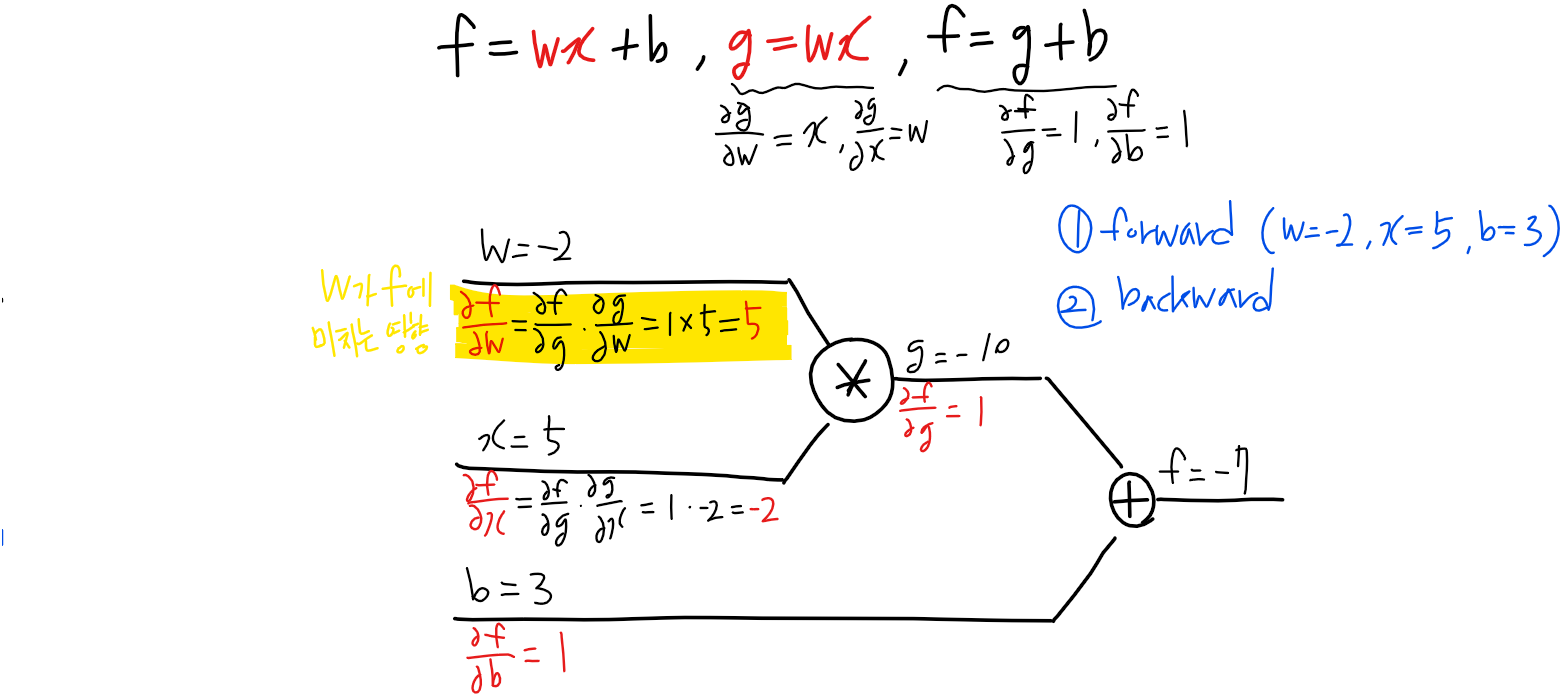 f = wx + b , g = wx , f = g + b
∂g/∂w = x , ∂g/∂x = w   ∂f/∂g = 1 , ∂f/∂b = 1
① forward (w=-2, x=5, b=3)
② backward
w = -2
w가 f에
미치는 영향
∂f/∂w = ∂f/∂g · ∂g/∂w = 1 × 5 = 5
*
g = -10
∂f/∂g = 1
x = 5
∂f/∂x = ∂f/∂g · ∂g/∂x = 1 · -2 = -2
+
f = -7
b = 3
∂f/∂b = 1